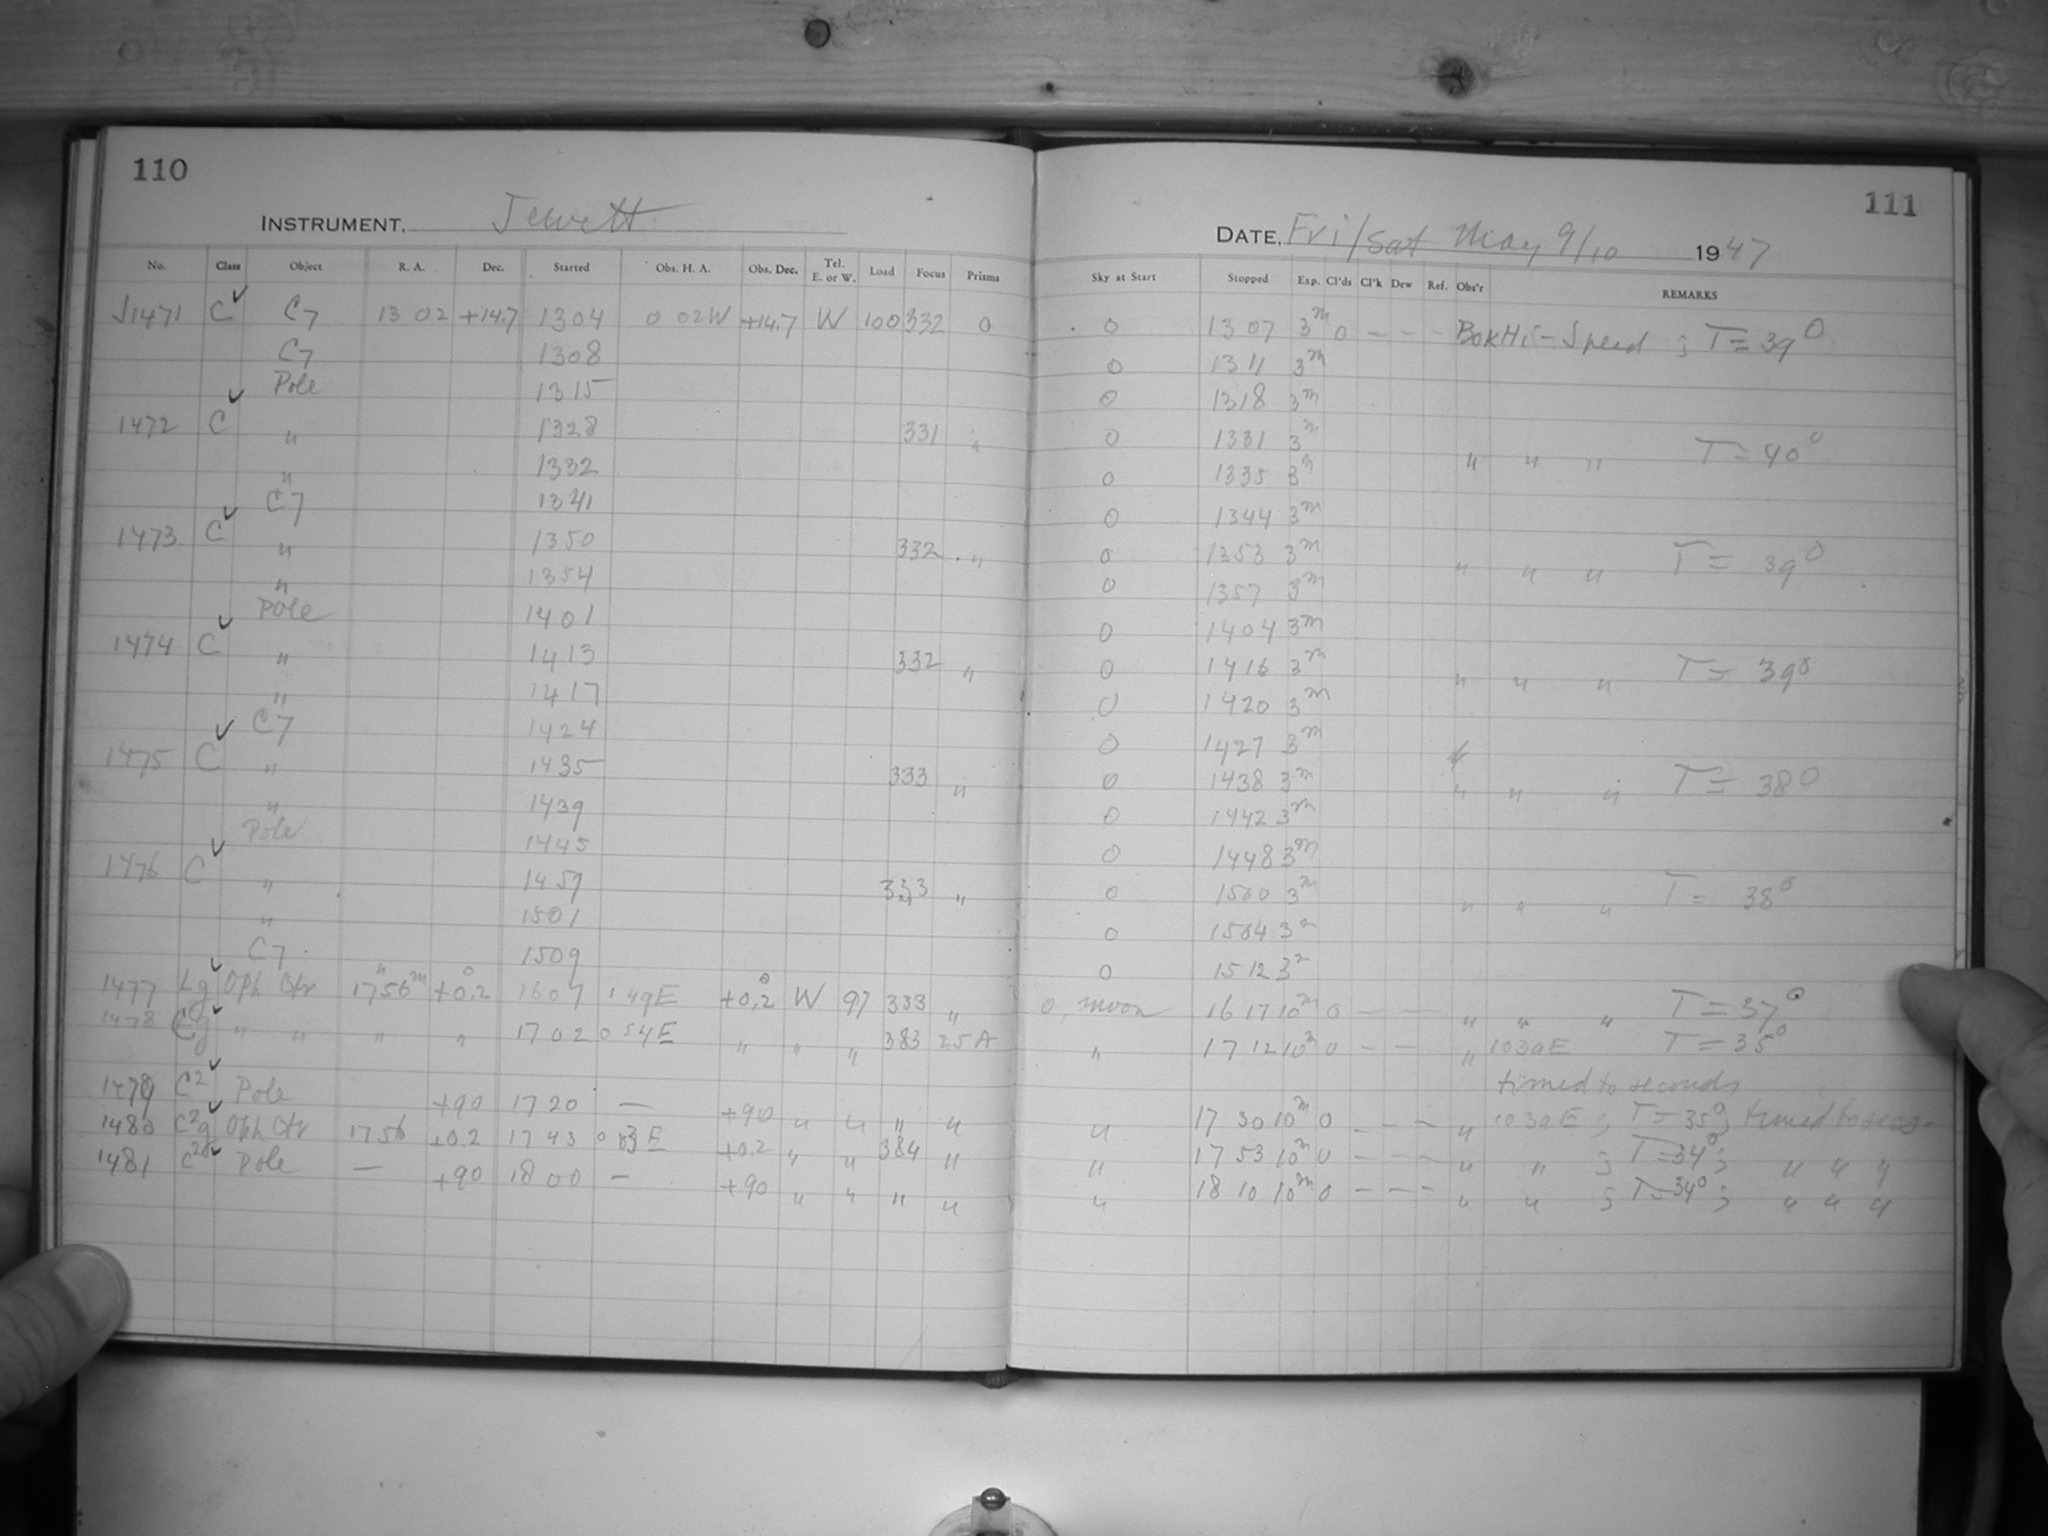 110
INSTRUMENT. Jewett
No. Class Object R. A. Dec. Started Obs. H. A. Obs. Dec. Tel. E. or W. Load Focus Prisms
J1471 C✓ C7 13 02 +14.7 1304 0 02W +14.7 W 100 332 0
C7 1308
Pole 1315
1472 C✓ " 1328 331 "
" 1332
C7 1341
1473 C✓ " 1350 332 "
" 1354
Pole 1401
1474 C✓ " 1413 332 "
" 1417
C7 1424
1475 C✓ " 1435 333 "
" 1439
Pole 1445
1476 C✓ " 1457 333 "
" 1501
C7 1509
1477 Lg✓ Oph Ctr 17h56m +0°.2 1607 1 49E +0°.2 W 97 333 "
1478 ✓ " " " " 1702 0 54E " " " 383 25A
1479 C2✓ Pole +90 1720 — +90 " " " "
1480 C2g✓ Oph Ctr 1756 +0.2 1743 0 03E +0.2 " " 384 "
1481 ✓ Pole — +90 1800 — +90 " " " "
111
DATE. Fri/Sat May 9/10 1947
Sky at Start Stopped Exp. Cl'ds Cl'k Dew Ref. Obs'r REMARKS
0 1307 3m 0 – – – Bok Hi-Speed ; T=39°
0 1311 3m
0 1318 3m
0 1331 3m " " " T=40°
0 1335 3m
0 1344 3m
0 1353 3m " " " T=39°
0 1357 3m
0 1404 3m
0 1416 3m " " " T=39°
0 1420 3m
0 1427 3m
0 1438 3m " " " T=38°
0 1442 3m
0 1448 3m
0 1500 3m " " " T=38°
0 1504 3m
0 1512 3m
0, moon 1617 10m 0 – – – " " " T=37°
" 1712 10m 0 – – " 103aE T=35°
timed to seconds
" 1730 10m 0 – – – " 103aE ; T=35°; timed to secs.
" 1753 10m 0 – – – " " ; T=34°; " " "
" 1810 10m 0 – – – " " ; T=34°; " " "